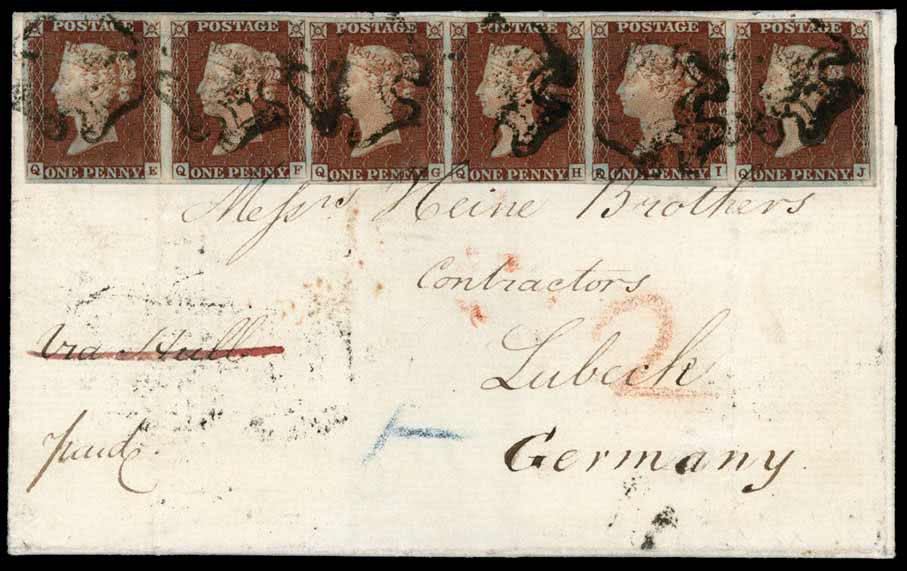 POSTAGE POSTAGE POSTAGE POSTAGE POSTAGE POSTAGE
Q ONE PENNY E Q ONE PENNY F Q ONE PENNY G Q ONE PENNY H Q ONE PENNY I Q ONE PENNY J
Messrs Heine Brothers
Contractors
Via Hull
2
Lubeck
paid
Germany